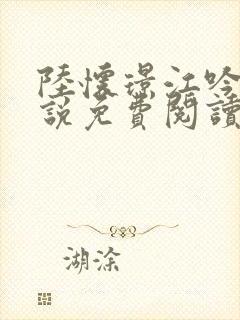 陸懷璟江吟
說免費閱讀
湖涂